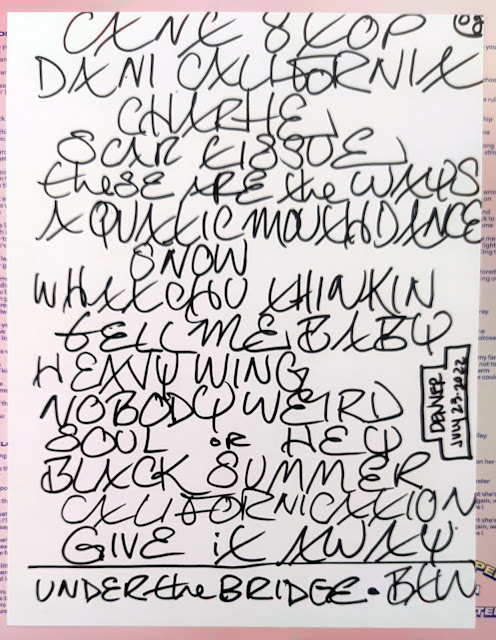 CANT STOP
DANI CALIFORNIA
CHARLIE
SCAR TISSUE
these ARE the WAYS
AQUATIC MOUTH DANCE
SNOW
WHATCHU THINKIN
TELL ME BABY
HEAVY WING
NOBODY WEIRD
SOUL OR HEY
BLACK SUMMER
CALIFORNICATION
GIVE it AWAY
UNDER the BRIDGE • BTW
DENVER
JULY 23-2022